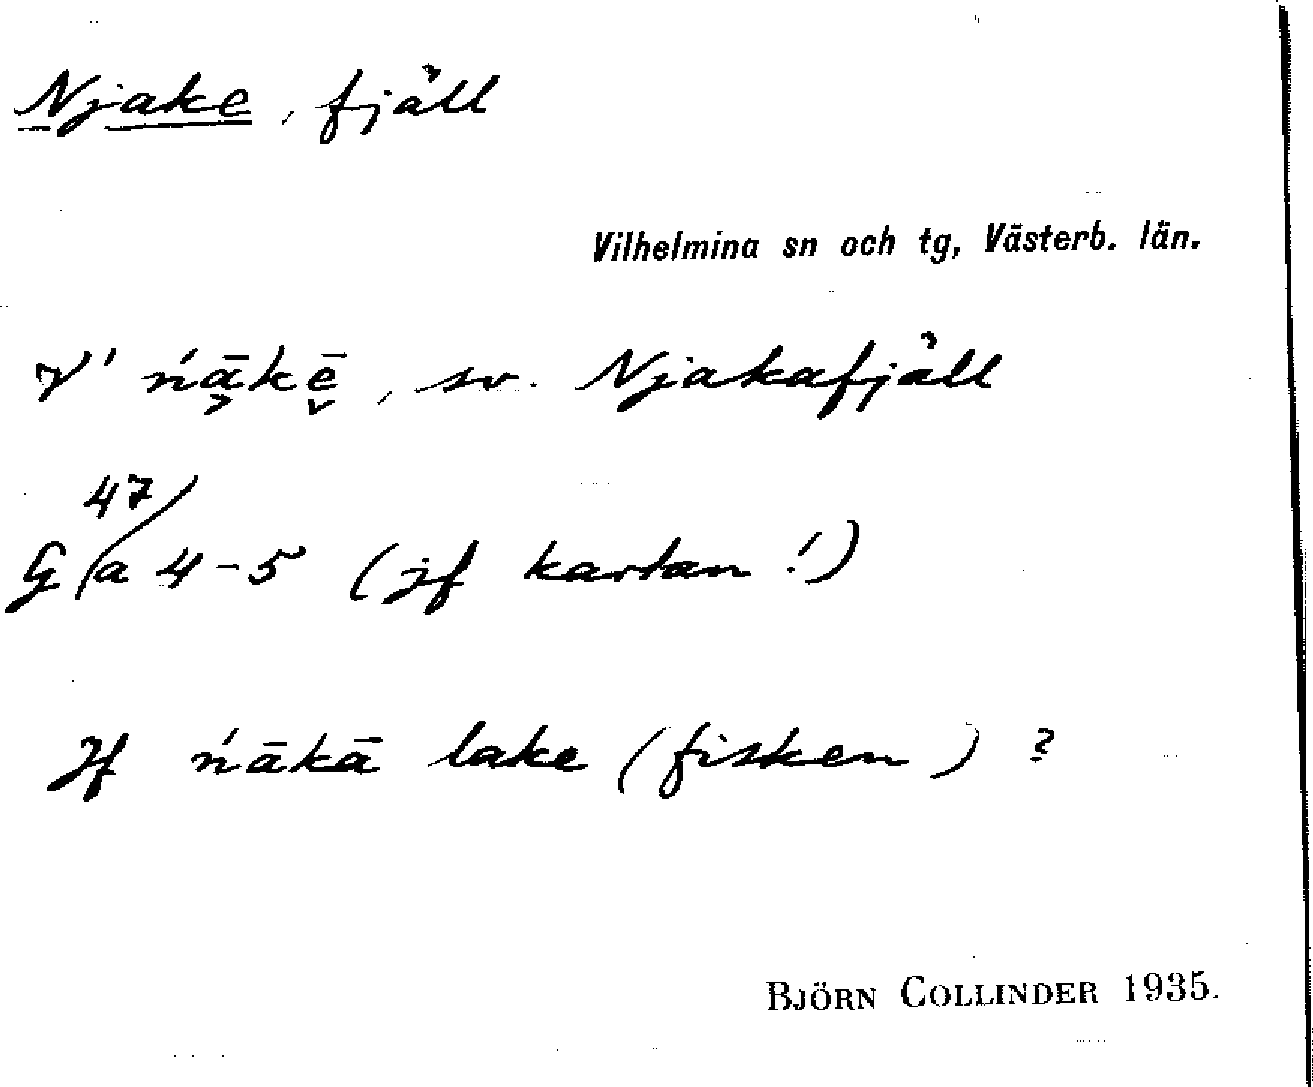 Njake, fjäll
Vilhelmina sn och tg, Västerb. län.
V' ńā̭kē̬, sv. Njakafjäll
47/
G/a 4-5 (jf kartan!)
Jf ńākā lake (fisken)?
BJÖRN COLLINDER 1935.